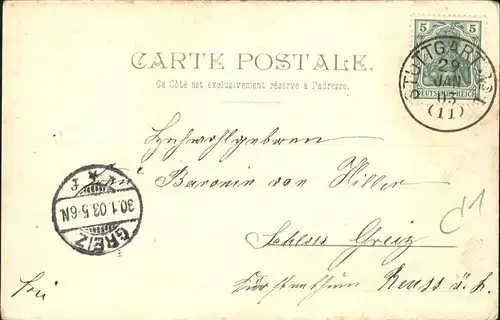 5 5
DEUTSCHES REICH
STUTTGART
29
JAN
03
(11)
CARTE POSTALE.
Ce Côté est exclusivement réservé à l'adresse.
Hochwohlgeboren
Baronin von Hiller
Schloss Greiz
Fürstenthum Reuss ä. L.
frei
GREIZ
30.1.03.5-6N.